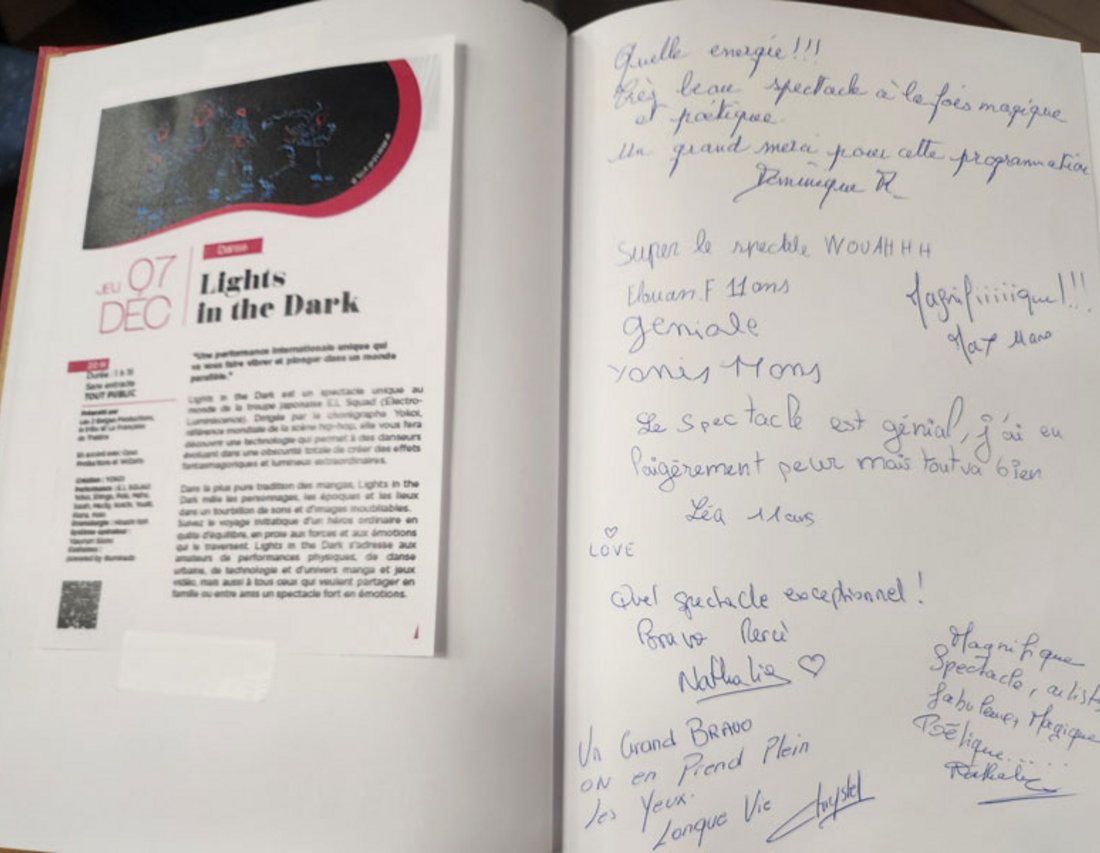 Danse
JEU 07
DÉC
Lights
in the Dark
20 H
Durée : 1 h 10
Sans entracte
TOUT PUBLIC
"Une performance internationale unique qui
va vous faire vibrer et plonger dans un monde
parallèle."
Lights in the Dark est un spectacle unique au
monde de la troupe japonaise E.L Squad (Electro-
Luminescence). Dirigée par le chorégraphe Yokoi,
référence mondiale de la scène hip-hop, elle vous fera
découvrir une technologie qui permet à des danseurs
évoluant dans une obscurité totale de créer des effets
fantasmagoriques et lumineux extraordinaires.
Dans la plus pure tradition des mangas, Lights in the
Dark mêle les personnages, les époques et les lieux
dans un tourbillon de sons et d'images inoubliables.
Suivez le voyage initiatique d'un héros ordinaire en
quête d'équilibre, en proie aux forces et aux émotions
qui le traversent. Lights in the Dark s'adresse aux
amateurs de performances physiques, de danse
urbaine, de technologie et d'univers manga et jeux
vidéo, mais aussi à tous ceux qui veulent partager en
famille ou entre amis un spectacle fort en émotions.
Quelle energie!!!
Très beau spectacle à la fois magique
et poétique.
Un grand merci pour cette programmation
Dominique R.
Super le spectcle WOUAHHH
Elouan.F 11ans
géniale
Yanis 11ans
Magnifiiiiiique!!!
Max 11ans
Le spectacle est génial, j'ai eu
laigèrement peur mais tout va bien
Léa 11ans
LOVE
Quel spectacle exceptionnel!
Bravo Merci
Nathalie
Magnifique
Spectacle, artistes
fabuleux, Magique
Poétique.....
Un Grand BRAVO
ON en Prend Plein
les Yeux.
Longue Vie